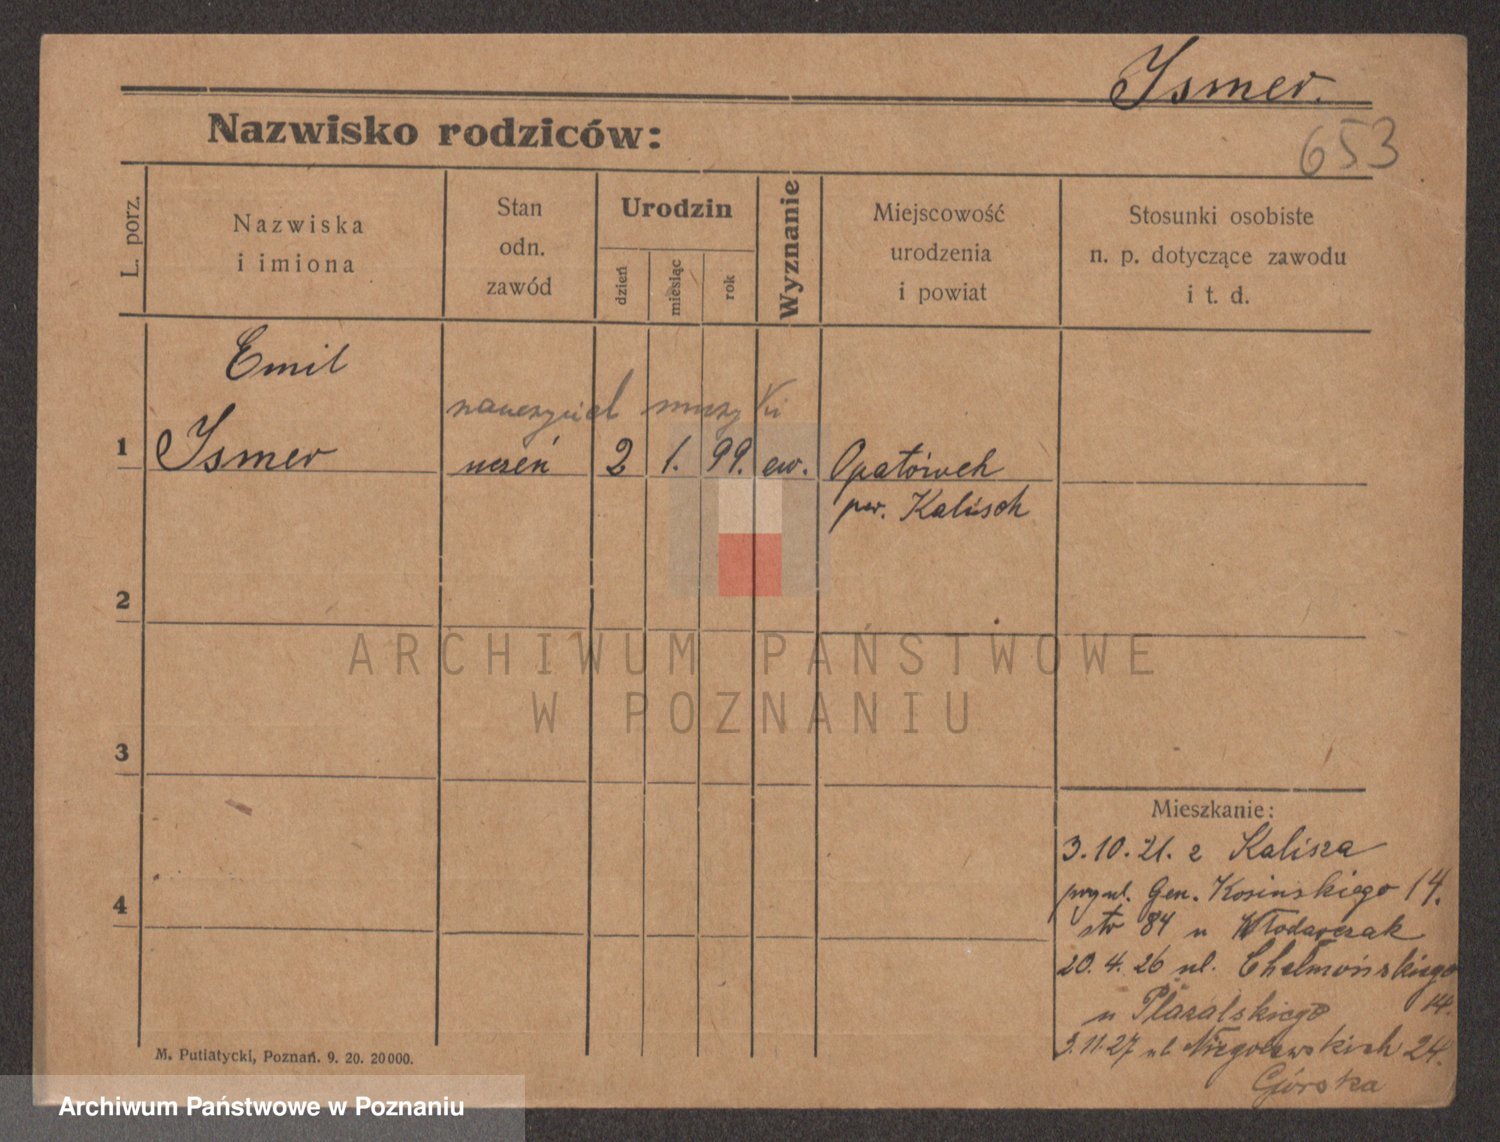 Ismer.
Nazwisko rodziców:
653
L. porz.
Nazwiska
i imiona
Stan
odn.
zawód
Urodzin
dzień
miesiąc
rok
Wyznanie
Miejscowość
urodzenia
i powiat
Stosunki osobiste
n. p. dotyczące zawodu
i t. d.
Emil
nauczyciel muzyki
1 Ismer uczeń 2 1. 99. ew. Opatówek
pow. Kalisch
2
3
4
ARCHIWUM PAŃSTWOWE
W POZNANIU
Mieszkanie:
3.10.21. z Kalisza
przy ul. Gen. Kosinskiego 14.
str 84 u Włodarczak
20.4.26 ul. Chełmońskiego
u 14.
3.11.27 ul. Niegolewskich 24.
Górska
M. Putiatycki, Poznań. 9. 20. 20000.
Archiwum Państwowe w Poznaniu